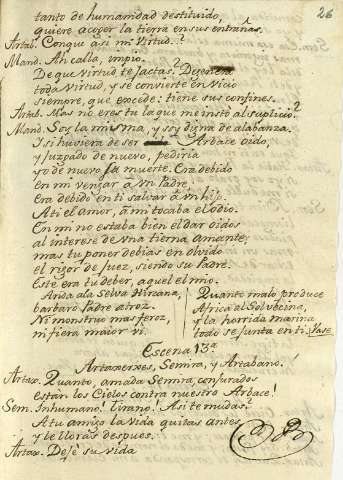 26
tanto de humanidad destituido,
quiere acoger la tierra en sus entrañas.
Artab. Conque asi mi Virtud?
Mand. Ah calla, impio.
De que virtud te jactas? Degenera
toda Virtud, y se convierte en vicio
siempre, que excede: tiene sus confines.
Artab. Mas no eres tu la que me instó al suplicio?
Mand. Soy la misma, y soy digna de alabanza.
I si huviera de ser Arbace oido,
y Juzgado de nuevo, pediria
yo de nuevo su muerte. Era debido
en mi vengar à un Padre,
era debido en ti salvar à un hijo.
A ti el amor, a mi tocaba el odio.
En mi no estaba bien el dar oidos
al interese de una tierna amante;
mas tu poner debias en olvido
el rigor de Juez, siendo su Padre.
Este era tu deber, aquel el mio.
Anda a la Selva Hircana,
barbaro Padre atroz.
Ni monstruo mas feroz,
ni fiera maior vi.
Quanto malo produce
Africa al Sol vecina,
y la horrida marina
todo se junta en ti. Vase
Escena 13ª
Artaxerxes, Semira, y Artabano.
Artax. Quanto, amada Semira, conjurados
estan los Cielos contra nuestro Arbace!
Sem. Inhumano! Tirano! Asi te mudas?
A tu amigo la vida quitas antes
y le lloras despues.
Artax. Dejé su vida